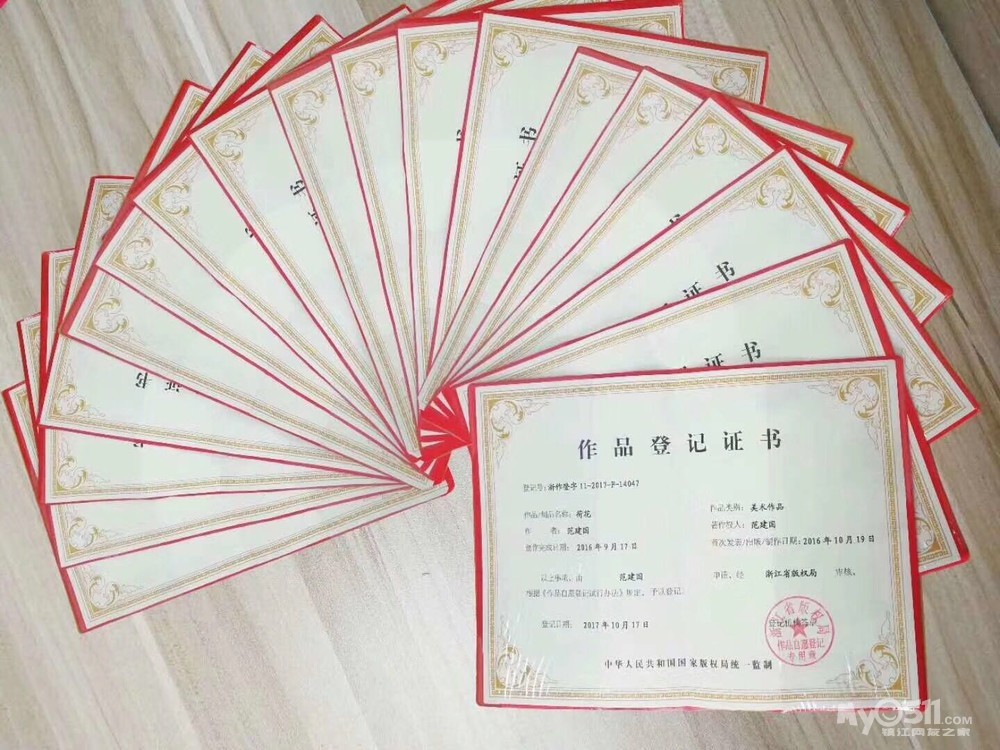 作品登记证书
登记号:浙作登字 11-2017-F-14047
作品/制品名称: 荷花
作品类别: 美术作品
作 者: 范建国
著作权人: 范建国
创作完成日期: 2016年9月17日
首次发表/出版/制作日期: 2016年10月19日
以上事项, 由 范建国 申请, 经 浙江省版权局 审核,
根据《作品自愿登记试行办法》规定, 予以登记。
登记日期: 2017年10月17日
登记机构签章
浙江省版权局
作品自愿登记
专用章
中华人民共和国国家版权局统一监制
证书
证书
证书
证书
证书
书
My0511.COM
镇江网友之家